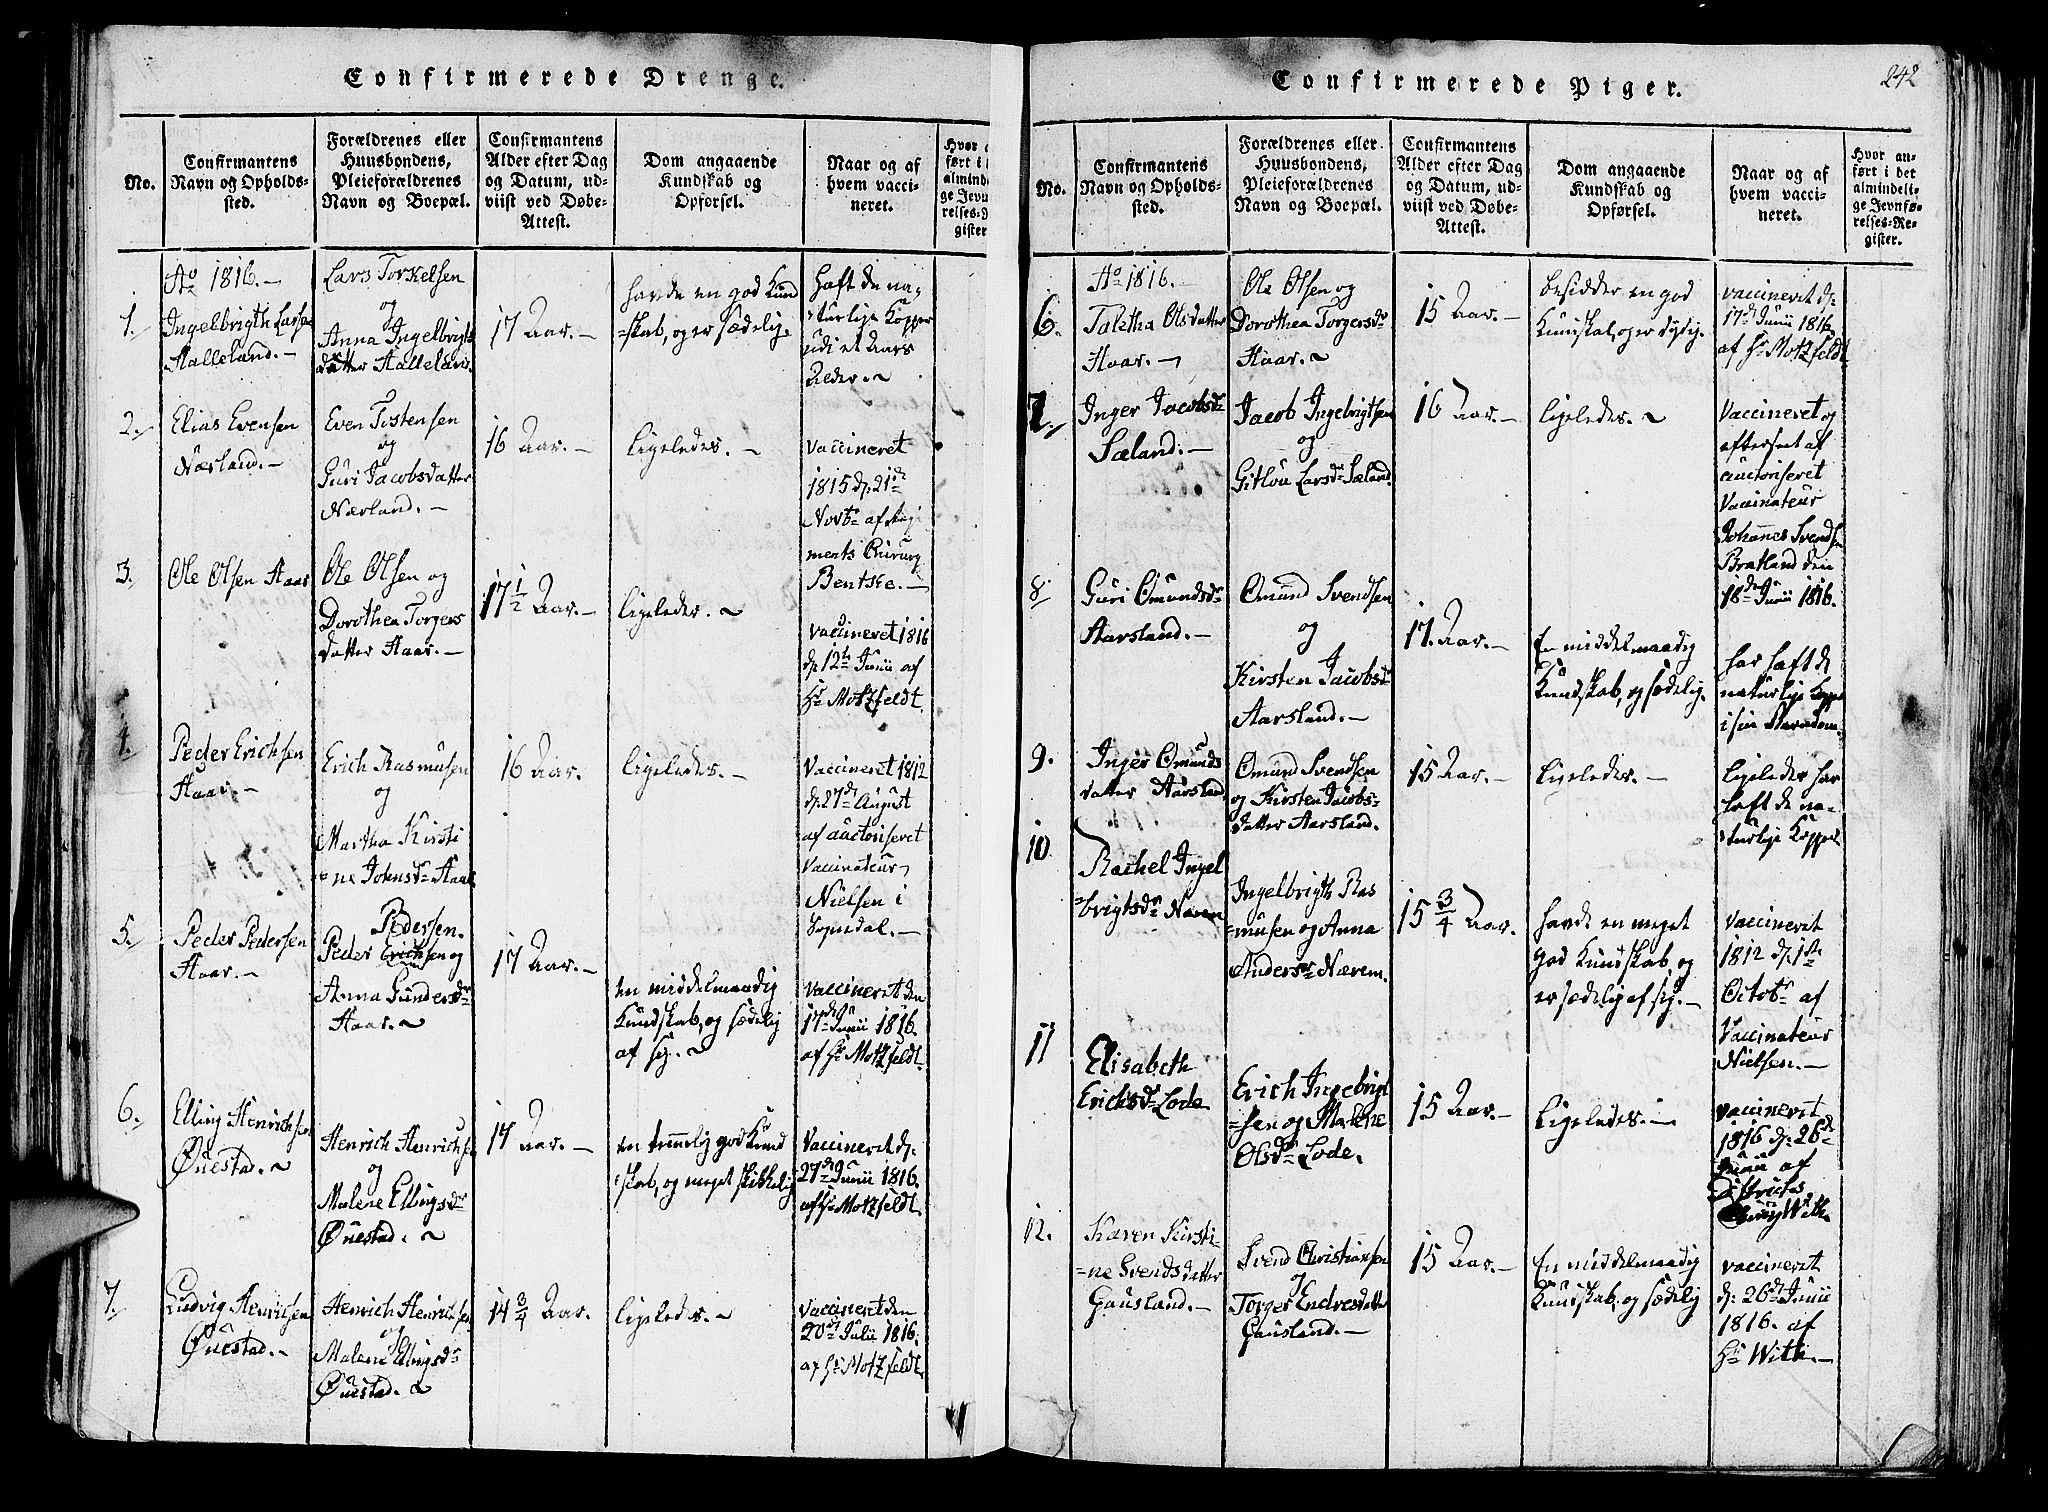 Confirmerede Drenge.
No.
Confirmantens
Navn og Opholds-
sted.
Forældrenes eller
Huusbondens,
Pleieforældrenes
Navn og Boepæl.
Confirmantens
Alder efter Dag
og Datum, ud-
viist ved Døbe-
Attest.
Dom angaaende
Kundskab og
Opførsel.
Naar og af
hvem vacci-
neret.
Ao 1816.-
1.
Ingelbrigth Larsen
Halleland.-
Lars Torkelsen
og
Anna Ingelbrigts
datter Halleland.
17 Aar.-
havde en god Kund
=skab, og er sædelig.
haft de na-
turlige Kopper
udi et Aars
Alder.
2.
Elias Evensen
Nærland.-
Even Tostensen
og
Guri Jacobsdatter
Nærland.-
16 Aar.-
ligeledes.-
Vaccineret
1815 d: 21de
Novbr af Regi
ments Chirurg
Bentse.-
3.
Ole Olsen Haar
Ole Olsen og
Dorothea Torgers
datter Haar.-
17 1/2 Aar.-
ligeledes.
vaccineret 1816
d: 12te Junii af
Hr Motzfeldt.
4.
Peder Erichsen
Haar.-
Erich Rasmusen
og
Martha Kirsti
=ne Johnsdr Haar
16 Aar.
ligeledes.-
Vaccineret 1812
d: 27de August
af auctoriseret
Vaccinateur
Nielsen i
Sogndal.-
5.
Peder Pedersen
Haar.-
Pedersen.
Peder Erichsen og
Anna Gundersdr
Haar.
17 Aar.-
en middelmaadig
Kundskab, og sædelig
af sig.
vaccineret den
17de Junii 1816.
af Hr Motzfeldt.
6.
Elling Henrichsen
Øuestad.
Henrich Henrichsen
og
Malene Ellingsdr
Øuestad.
17 Aar.-
en temmelig god Kund
skab, og meget skikkelig
Vaccineret d:
27de Junii 1816.
af Hr Motzfeldt.
7.
Ludvig Henrichsen
Øuestad.-
Henrich Henrichsen
og
Malene Ellingsdr
Øuestad.
14 3/4 Aar.
ligeledes.
vaccineret den
20de Julii 1816.
af Hr Motzfeldt.
Confirmerede Piger.
242
No.
Confirmantens
Navn og Opholds-
sted.
Forældrenes eller
Huusbondens,
Pleieforældrenes
Navn og Boepæl.
Confirmantens
Alder efter Dag
og Datum, ud-
viist ved Døbe-
Attest.
Dom angaaende
Kundskab og
Opførsel.
Naar og af
hvem vacci-
neret.
Hvor an-
ført i det
almindeli-
ge Jevnfø-
relses-Re-
gister.
Ao 1816.-
6.
Taletha Olsdatter
Haar.
Ole Olsen og
Dorothea Torgersdr
Haar.
15 Aar.-
besidder en god
Kundskab, og er dydig.
vaccineret d:
17de Junii 1816.
af Hr Motzfeldt
7.
Inger Jacobsdr
Sæland.-
Jacob Ingebrigtsen
og
Gitlou Larsdr Sæland.
16 Aar.-
ligeledes.
Vaccineret og
efterseet af
auctoriseret
Vaccinateur
Johannes Svendsen
Bratland den
18de Junii 1816.
8
Guri Omundsdr
Aarsland.-
Omund Svendsen
og
Kirsten Jacobsdr
Aarsland.-
17. Aar.-
En middelmaadig
Kundskab, og sædelig.
har haft de
naturlige Kopper
i sin Barndom.
9.
Inger Omunds
datter Aarsland
Omund Svendsen
og Kirsten Jacobs=
datter Aarsland.
15 Aar.-
Ligeledes.-
ligeledes har
haft de na-
turlige Kopper
10
Rachel Ingel
=brigtsdr Nærem
Ingelbrigth Ras
=musen og Anna
Andersdr Nærem.
15 3/4 Aar.
havde en meget
god Kundskab, og
er sædelig af sig.-
vaccineret
1812 d: 1ste
Octobr af
Vaccinateur
Nielsen.-
11
Elisabeth
Erichsdr Lode
Erich Ingebrigt
=sen og Malene
Olsdr Lode.
15 Aar.-
Ligeledes.-
vaccineret
1816 d: 26de
Junii af
Districts
With.
12.
Karen Kirsti-
=ne Svendsdatter
Gausland.-
Svend Christiansen
og
Torger Endresdatter
Gausland.-
15 Aar.-
En middelmaadig
Kundskab, og sædelig
vaccineret
d: 26de Junii
1816. af
Hr With.-